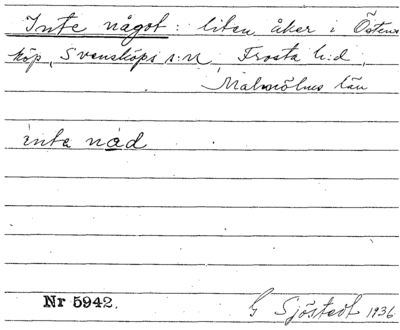 Inte något: liten åker i Östens
köp, Svensköps s:n Frosta h:d,
Malmöhus län
inte nåd
Nr 5942.
G Sjöstedt 1936